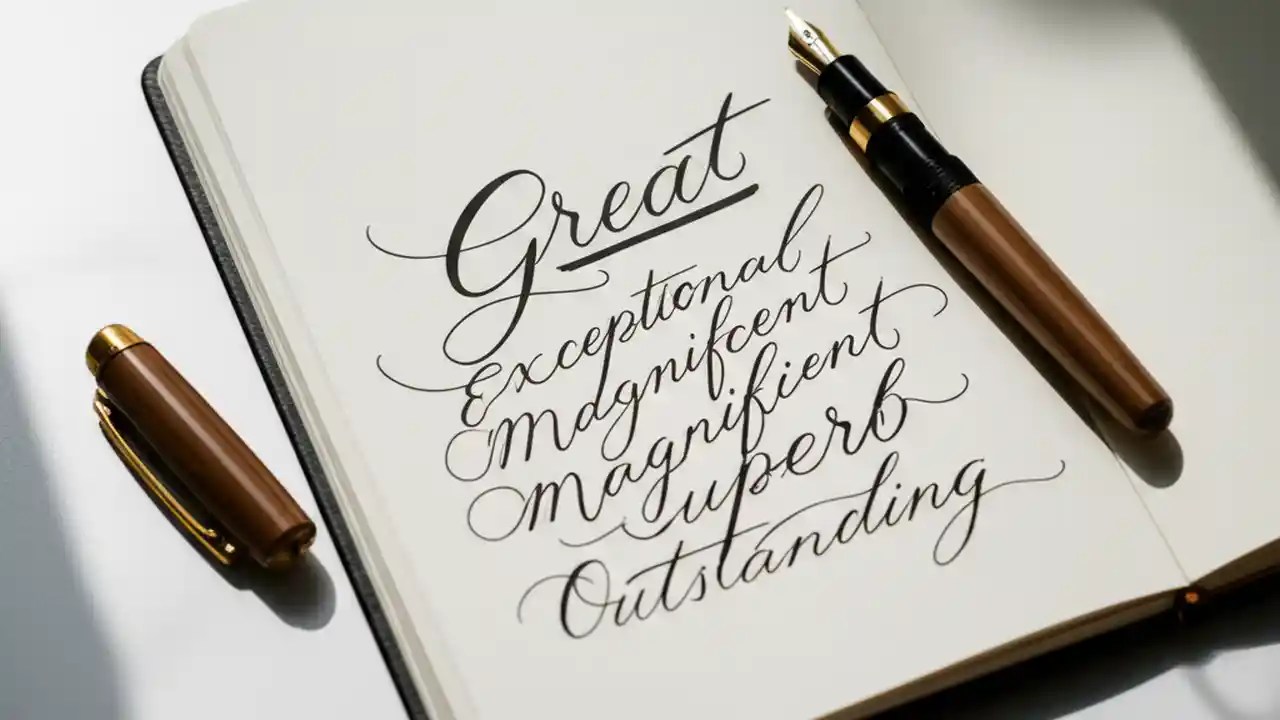 Great
Exceptional
Magnifcent
Magnifient
Superb
Outstanding